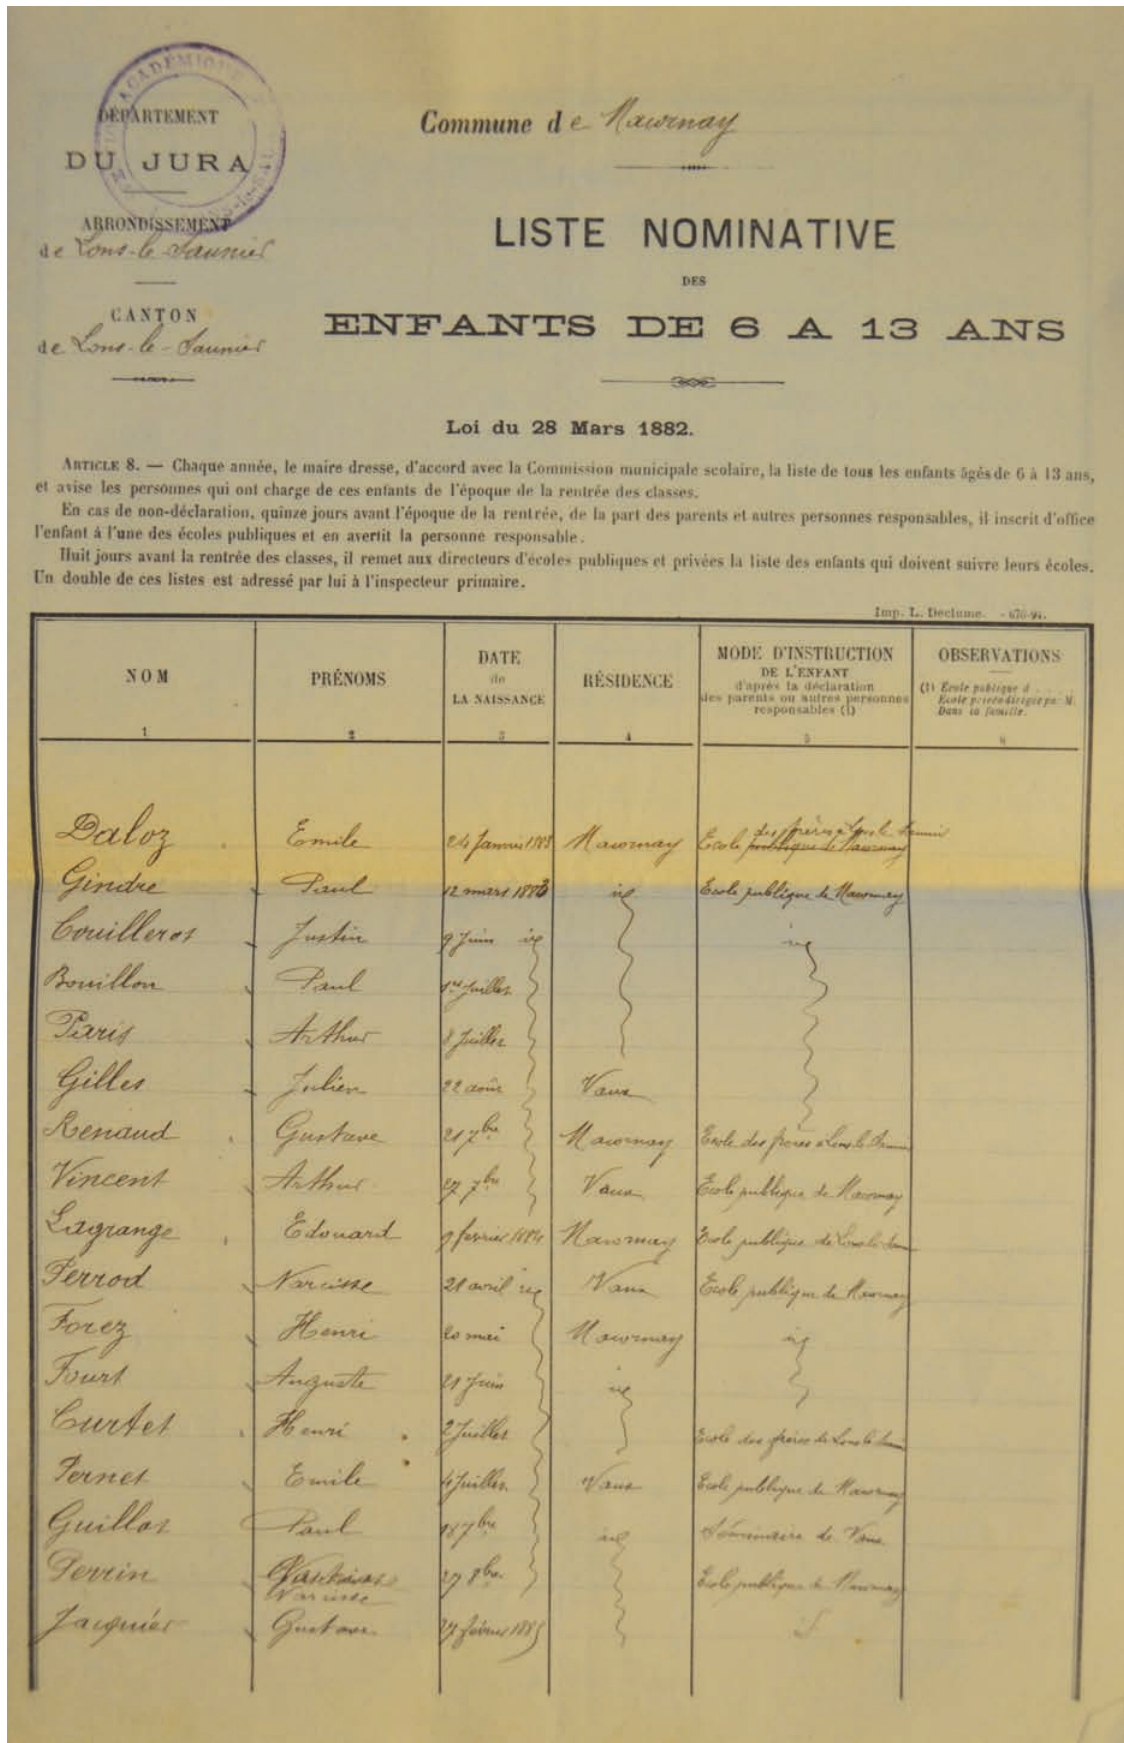 ACADÉMIQUE
DÉPARTEMENT
DU JURA
Commune de Macornay
ARRONDISSEMENT
de Lons-le-Saunier
LISTE NOMINATIVE
DES
CANTON
de Lons-le-Saunier
ENFANTS DE 6 A 13 ANS
Loi du 28 Mars 1882.
ARTICLE 8. — Chaque année, le maire dresse, d'accord avec la Commission municipale scolaire, la liste de tous les enfants âgés de 6 à 13 ans,
et avise les personnes qui ont charge de ces enfants de l'époque de la rentrée des classes.
En cas de non-déclaration, quinze jours avant l'époque de la rentrée, de la part des parents et autres personnes responsables, il inscrit d'office
l'enfant à l'une des écoles publiques et en avertit la personne responsable.
Huit jours avant la rentrée des classes, il remet aux directeurs d'écoles publiques et privées la liste des enfants qui doivent suivre leurs écoles.
Un double de ces listes est adressé par lui à l'inspecteur primaire.
Imp. L. Declume. - 676-94.
NOM PRÉNOMS DATE de LA NAISSANCE RÉSIDENCE MODE D'INSTRUCTION DE L'ENFANT d'après la déclaration des parents ou autres personnes responsables (1) OBSERVATIONS (1) Ecole publique d . . . . Ecole privée dirigée par M. Dans la famille.
1 2 3 4 5 6
Daloz Emile 24 Janvier 1883 Macornay Ecole publique de Macornay des frères à Lons le Saunier
Gindre Paul 12 mars 1883 id Ecole publique de Macornay
Couilleros Justin 9 Juin id id
Bouillon Paul 1er Juillet
Paris Arthur 8 Juillet
Gilles Julien 22 août Vaux
Renaud Gustave 21 7bre Macornay Ecole des frères à Lons le Saunier
Vincent Arthur 27 7bre Vaux Ecole publique de Macornay
Lagrange Edouard 9 février 1884 Macornay Ecole publique de Lons le Saunier
Perrod Narcisse 21 avril id Vaux Ecole publique de Macornay
Forez Henri 20 mai Macornay id
Fourt Auguste 21 Juin id
Curtet Henri 2 Juillet Ecole des frères de Lons le Saunier
Pernet Emile 4 Juillet Vaux Ecole publique de Macornay
Guillot Paul 18 7bre id Séminaire de Vaux
Perrin 27 8bre Ecole publique de Macornay
Narcisse
Jacquier Gustave 27 février 1885